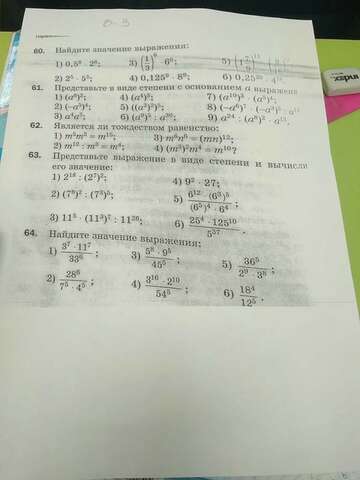 60. Найдите значение выражения:
1) 0,5⁹ · 2⁹; 3) (1/3)⁹ · 6⁹;
2) 2⁵ · 5⁵; 4) 0,125⁹ · 8⁹; 6) 0,25²⁰ ·
61. Представьте в виде степени с основанием a выражен
1) (a⁶)²; 4) (a⁴)⁸; 7) (a¹⁰)³ · (a⁵)⁴;
2) (–a⁵)⁴; 5) ((a³)²)⁵; 8) (–a⁶)⁷ ·
3) a⁴a³; 6) (a⁹)⁵ : a³⁰; 9) a²⁴ : (a⁸)² ·
62. Является ли тождеством равенство:
1) m⁵m³ = m¹⁵; 3) m⁶n⁶ = (mn)¹²;
2) m¹² : m³ = m⁴; 4) (m³)²m⁴ = m¹⁰?
63. Представьте выражение в виде степени и вычисли
его значение:
1) 2¹⁸ : (2⁷)²; 4) 9² · 27;
2) (7⁹)² : (7³)⁵; 5) 6¹² · (6³)⁵ / (6⁵)⁴ · 6⁴ ;
3) 11⁵ · (11³)⁷ : 11²⁶; 6) 25⁴ · 125¹⁰ / 5³⁷ .
64. Найдите значение выражения:
1) 3⁷ · 11⁷ / 33⁶ ; 3) 5⁸ · 9⁵ / 45⁵ ; 5) 36⁵ / 2⁹ · 3⁸ ;
2) 28⁶ / 7⁵ · 4⁵ ; 4) 3¹⁶ · 2¹⁰ / 54⁵ ; 6) 18⁴ / 12⁵ .